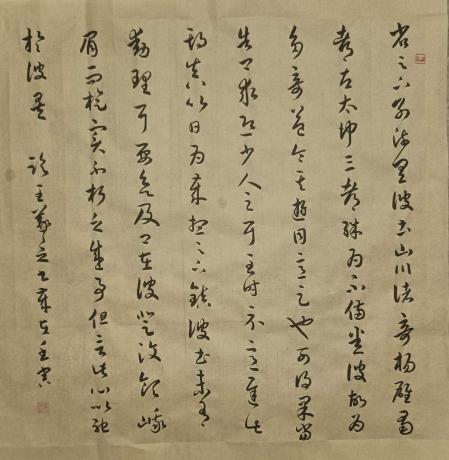 省足下別疏具彼土山川諸奇楊雄蜀
都左太沖三都殊為不備悉彼故為
多奇益令其遊目意足也可得果當
告卿求迎少人足耳至時示意遲此
期真以日為歲想足下鎮彼土未有
動理耳要欲及卿在彼登汶領峨
眉而旋實不朽之盛事但言此心以馳
於彼矣 臨王羲之 歲在壬寅